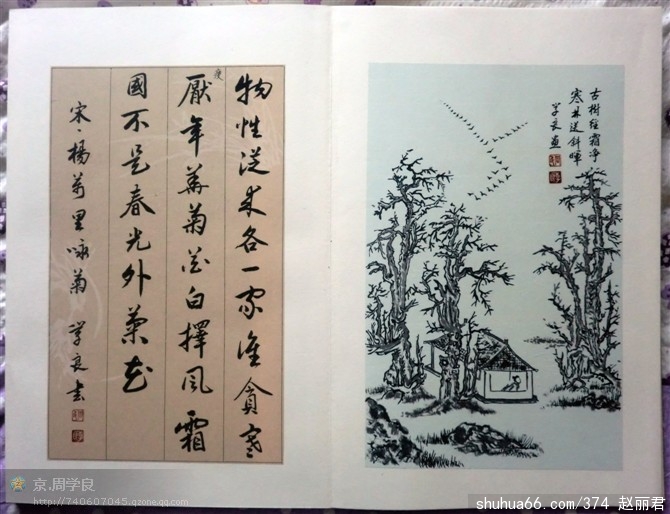 物性從来各一家誰貪寒
瘦
厭年華菊花自擇風霜
國不是春光外菊花
宋、楊萬里咏菊 学良書
古樹經霜净
寒林送斜暉
学良畫
京.周学良
http://740607045.qzone.qq.com
shuhua66.com/374 赵丽君